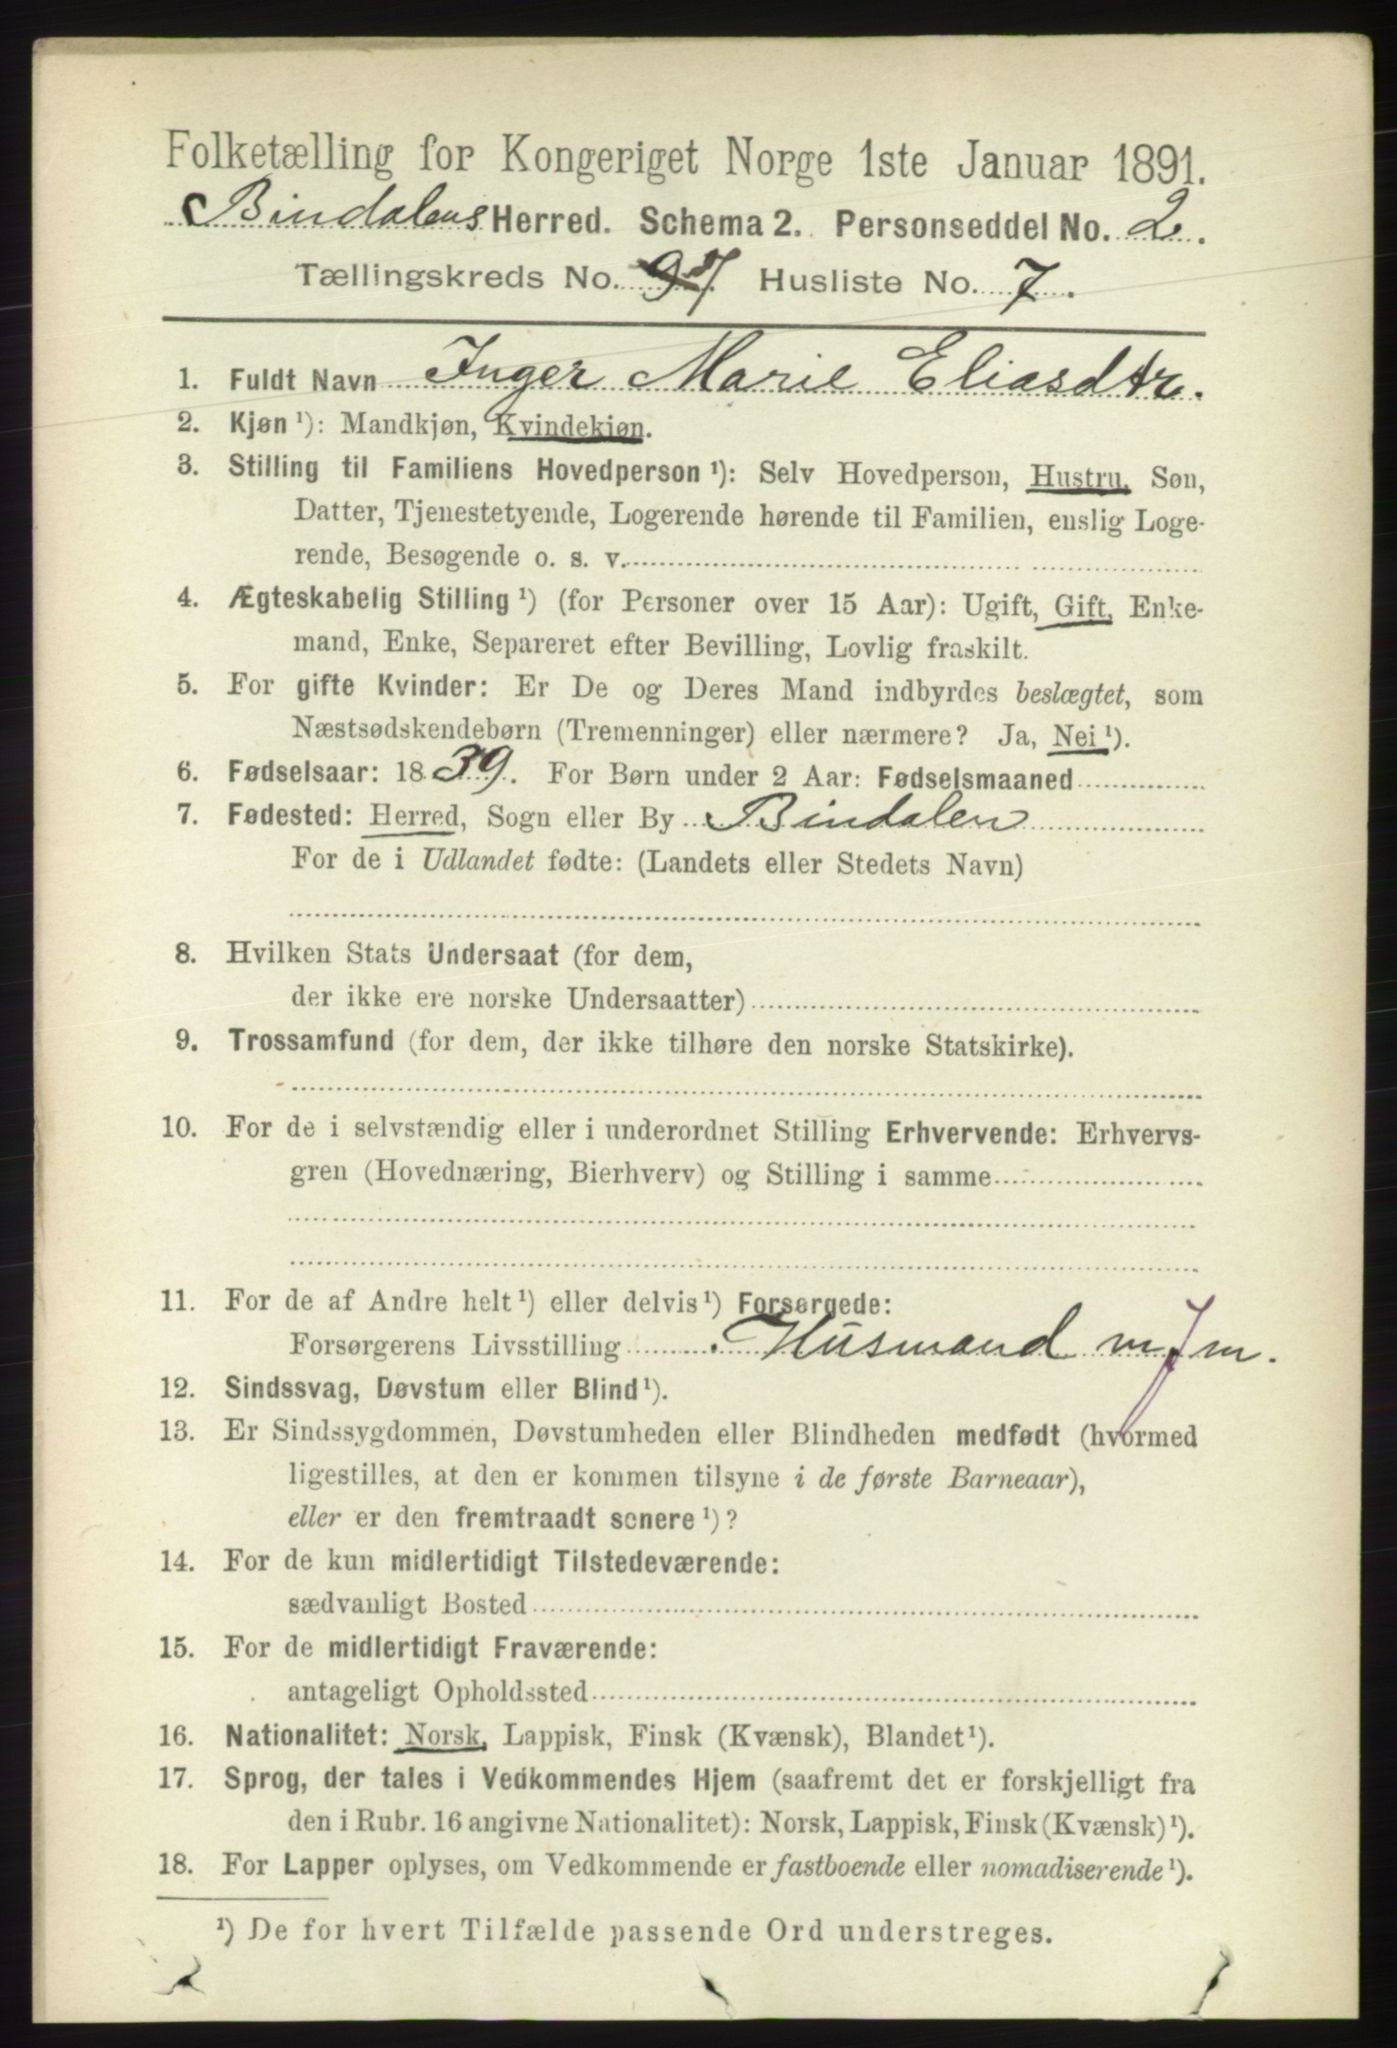 Folketælling for Kongeriget Norge 1ste Januar 1891.
Bindalens Herred. Schema 2. Personseddel No. 2.
Tællingskreds No. 7. Husliste No. 7.
1. Fuldt Navn Inger Marie Eliasdtr.
2. Kjøn ¹): Mandkjøn, Kvindekjøn.
3. Stilling til Familiens Hovedperson ¹): Selv Hovedperson, Hustru, Søn,
Datter, Tjenestetyende, Logerende hørende til Familien, enslig Loge-
rende, Besøgende o. s. v.
4. Ægteskabelig Stilling ¹) (for Personer over 15 Aar): Ugift, Gift, Enke-
mand, Enke, Separeret efter Bevilling, Lovlig fraskilt.
5. For gifte Kvinder: Er De og Deres Mand indbyrdes beslægtet, som
Næstsødskendebørn (Tremenninger) eller nærmere? Ja, Nei ¹).
6. Fødselsaar: 1839. For Børn under 2 Aar: Fødselsmaaned
7. Fødested: Herred, Sogn eller By Bindalen
For de i Udlandet fødte: (Landets eller Stedets Navn)
8. Hvilken Stats Undersaat (for dem,
der ikke ere norske Undersaatter)
9. Trossamfund (for dem, der ikke tilhøre den norske Statskirke).
10. For de i selvstændig eller i underordnet Stilling Erhvervende: Erhvervs-
gren (Hovednæring, Bierhverv) og Stilling i samme
11. For de af Andre helt ¹) eller delvis ¹) Forsørgede:
Forsørgerens Livsstilling Husmand m J m.
12. Sindssvag, Døvstum eller Blind ¹).
13. Er Sindssygdommen, Døvstumheden eller Blindheden medfødt (hvormed
ligestilles, at den er kommen tilsyne i de første Barneaar),
eller er den fremtraadt senere ¹)?
14. For de kun midlertidigt Tilstedeværende:
sædvanligt Bosted
15. For de midlertidigt Fraværende:
antageligt Opholdssted
16. Nationalitet: Norsk, Lappisk, Finsk (Kvænsk), Blandet ¹).
17. Sprog, der tales i Vedkommendes Hjem (saafremt det er forskjelligt fra
den i Rubr. 16 angivne Nationalitet): Norsk, Lappisk, Finsk (Kvænsk) ¹).
18. For Lapper oplyses, om Vedkommende er fastboende eller nomadiserende ¹).
¹) De for hvert Tilfælde passende Ord understreges.